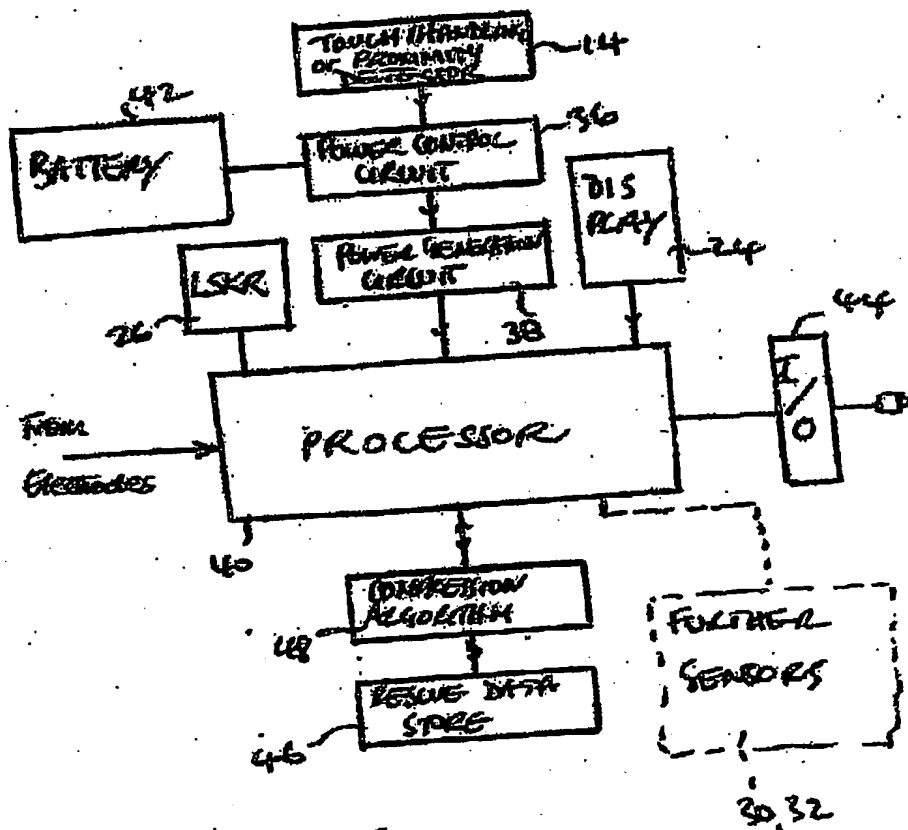 TOUCH/HANDLING
or PROXIMITY
DETECTOR
14
42
BATTERY
POWER CONTROL
CIRCUIT
36
DIS
PLAY
24
LSKR
26
POWER GENERATION
CIRCUIT
38
44
I
/
O
From
Electrodes
PROCESSOR
40
COMPRESSION
ALGORITHM
48
RESCUE DATA
STORE
46
FURTHER
SENSORS
30,32